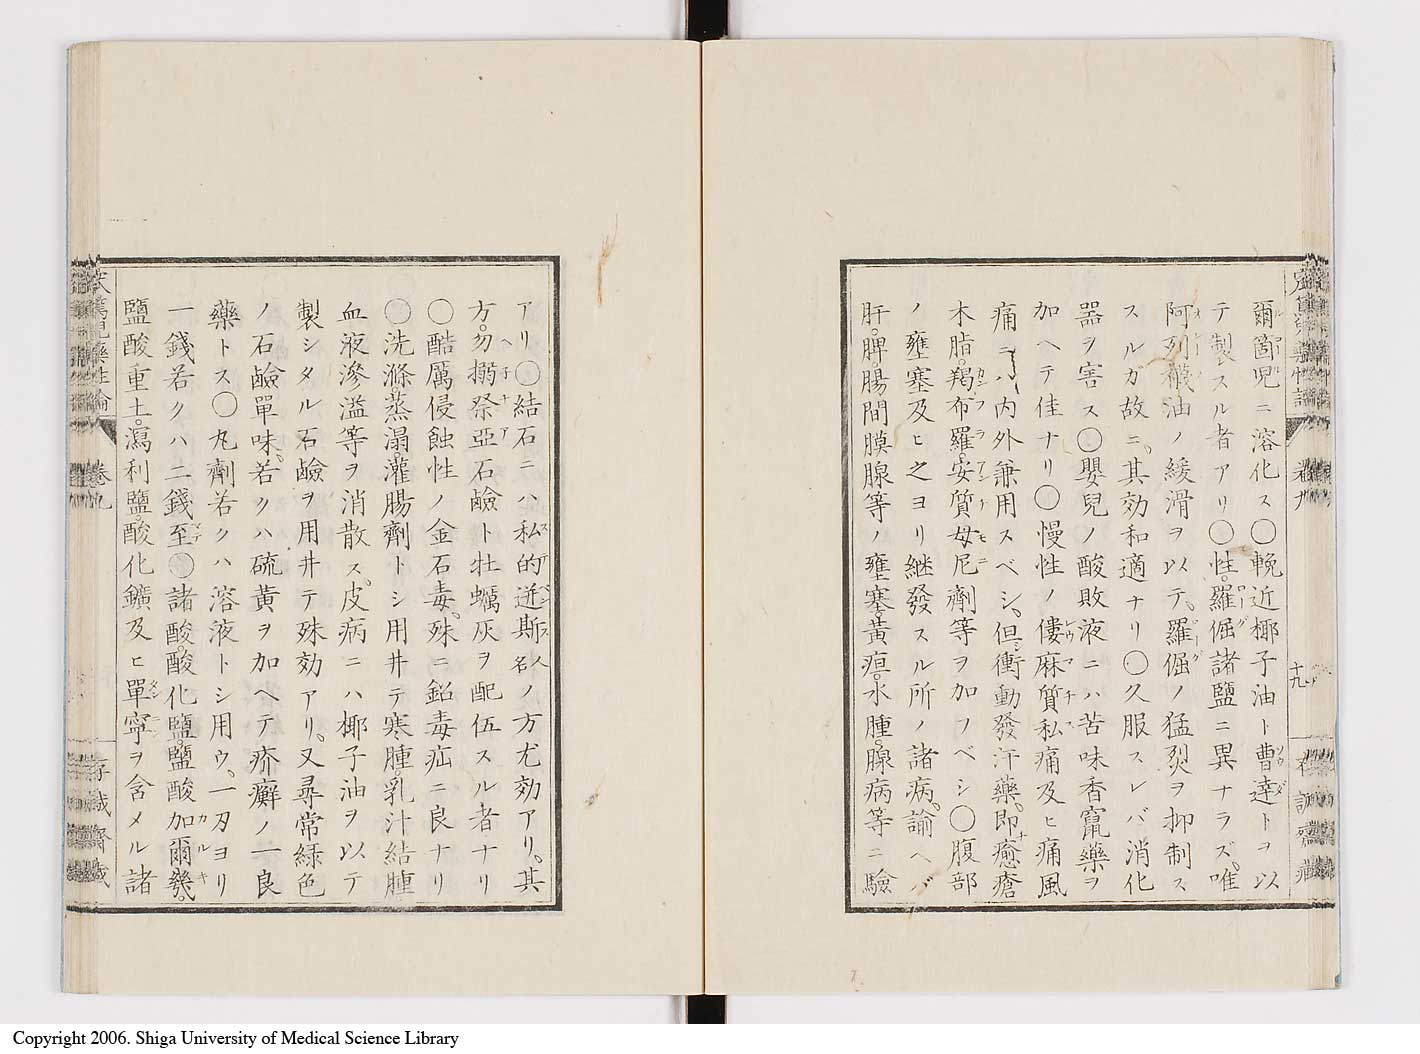 爾箇児ニ溶化ス〇輓近椰子油ト曹達トヲ以
テ製スル者アリ〇性羅倔諸鹽ニ異ナラズ唯
阿列襪油ノ緩滑ヲ以テ羅倔ノ猛烈ヲ抑制ス
スルガ故ニ其効和適ナリ〇久服スレバ消化
器ヲ害ス〇嬰兒ノ酸敗液ニハ苦味香竄藥ヲ
加ヘテ佳ナリ〇慢性ノ僂麻質私痛及ヒ痛風
痛ニハ内外兼用スベシ但衝動發汗藥即癒瘡
木脂羯布羅安質母尼劑等ヲ加フベシ〇腹部
ノ壅塞及ヒ之ヨリ継發スル所ノ諸病諭ヘバ
肝脾腸間膜腺等ノ壅塞黄疸水腫腺病等ニ驗
十九
アリ〇結石ニハ私的迸斯人名ノ方尤効アリ其
方勿搦祭亞石鹸ト牡蠣灰ヲ配伍スル者ナリ
〇酷厲侵蝕性ノ金石毒殊ニ鉛毒疝ニ良ナリ
〇洗滌蒸溻灌腸劑トシ用井テ寒腫乳汁結腫
血液滲溢等ヲ消散ス皮病ニハ椰子油ヲ以テ
製シタル石鹸ヲ用井テ殊効アリ又尋常緑色
ノ石鹸單味若クハ硫黄ヲ加ヘテ疥癬ノ一良
藥トス〇丸劑若クハ溶液トシ用ウ一刃ヨリ
一錢若クハ二錢至〇諸酸酸化鹽鹽酸加爾幾
鹽酸重土瀉利鹽酸化鑛及ヒ單寧ヲ含メル諸
藥性論
卷九